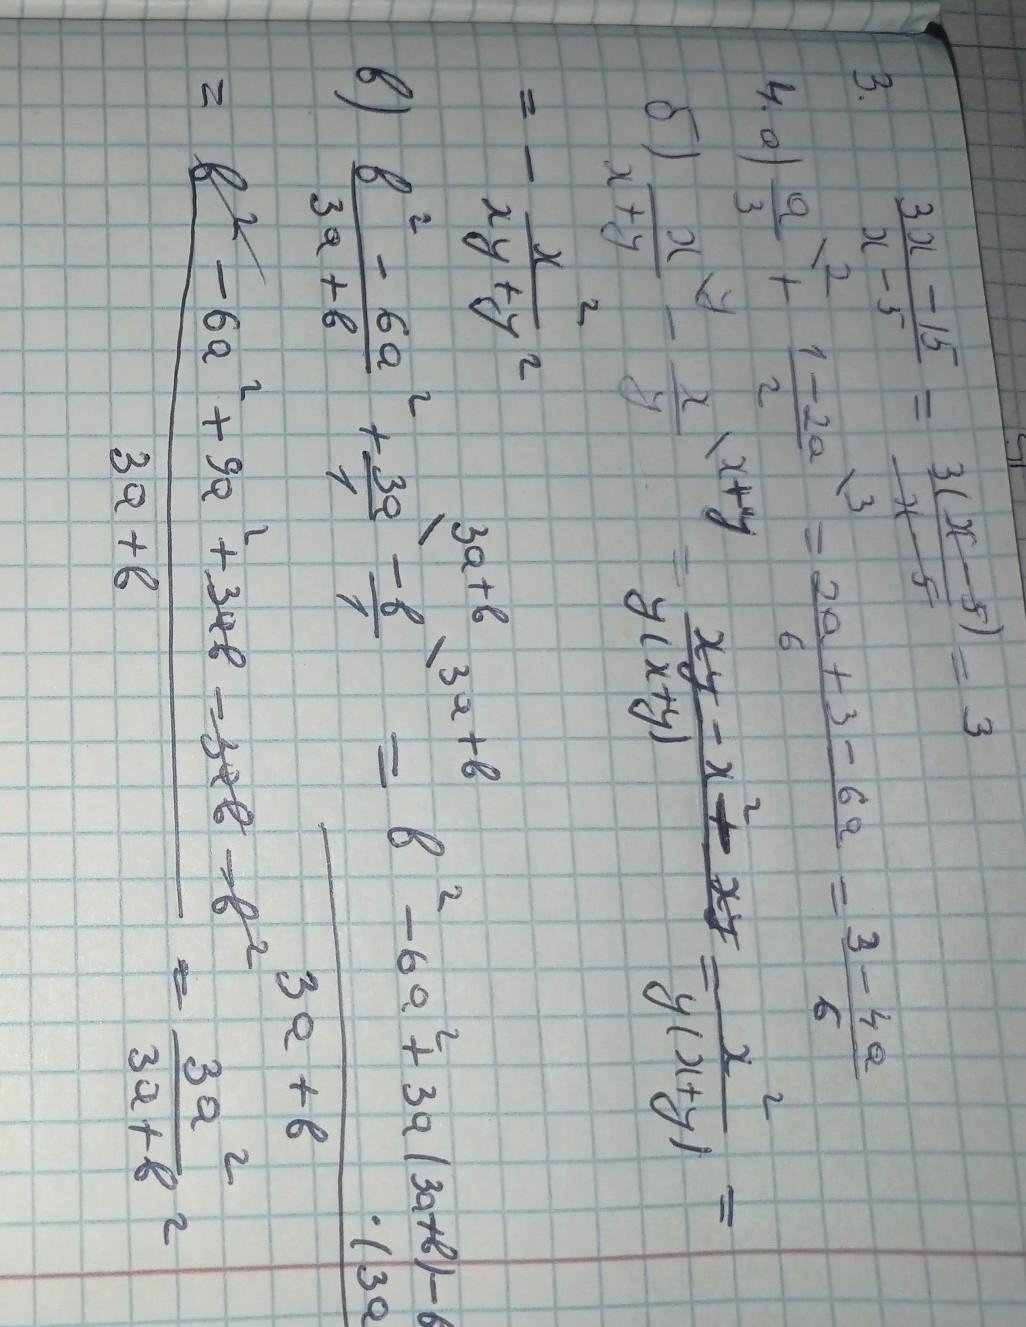 3. (3x - 15)/(x - 5) = 3(x - 5)/(x - 5) = 3
4. а) a/3 \2 + (1 - 2a)/2 \3 = (2a + 3 - 6a)/6 = (3 - 4a)/6
б) x/(x+y) \y - x/y \x+y = (xy - x² - xy)/(y(x+y)) = x²/(y(x+y)) =
= - x²/(xy+y²)
в) (b² - 6a²)/(3a+b) + 3a/1 \3a+b - b/1 \3a+b = (b² - 6a² + 3a(3a+b) - b·(3a/(3a+b)
= (b² - 6a² + 9a² + 3ab - 3ab - b²)/(3a+b) = 3a²/(3a+b²)